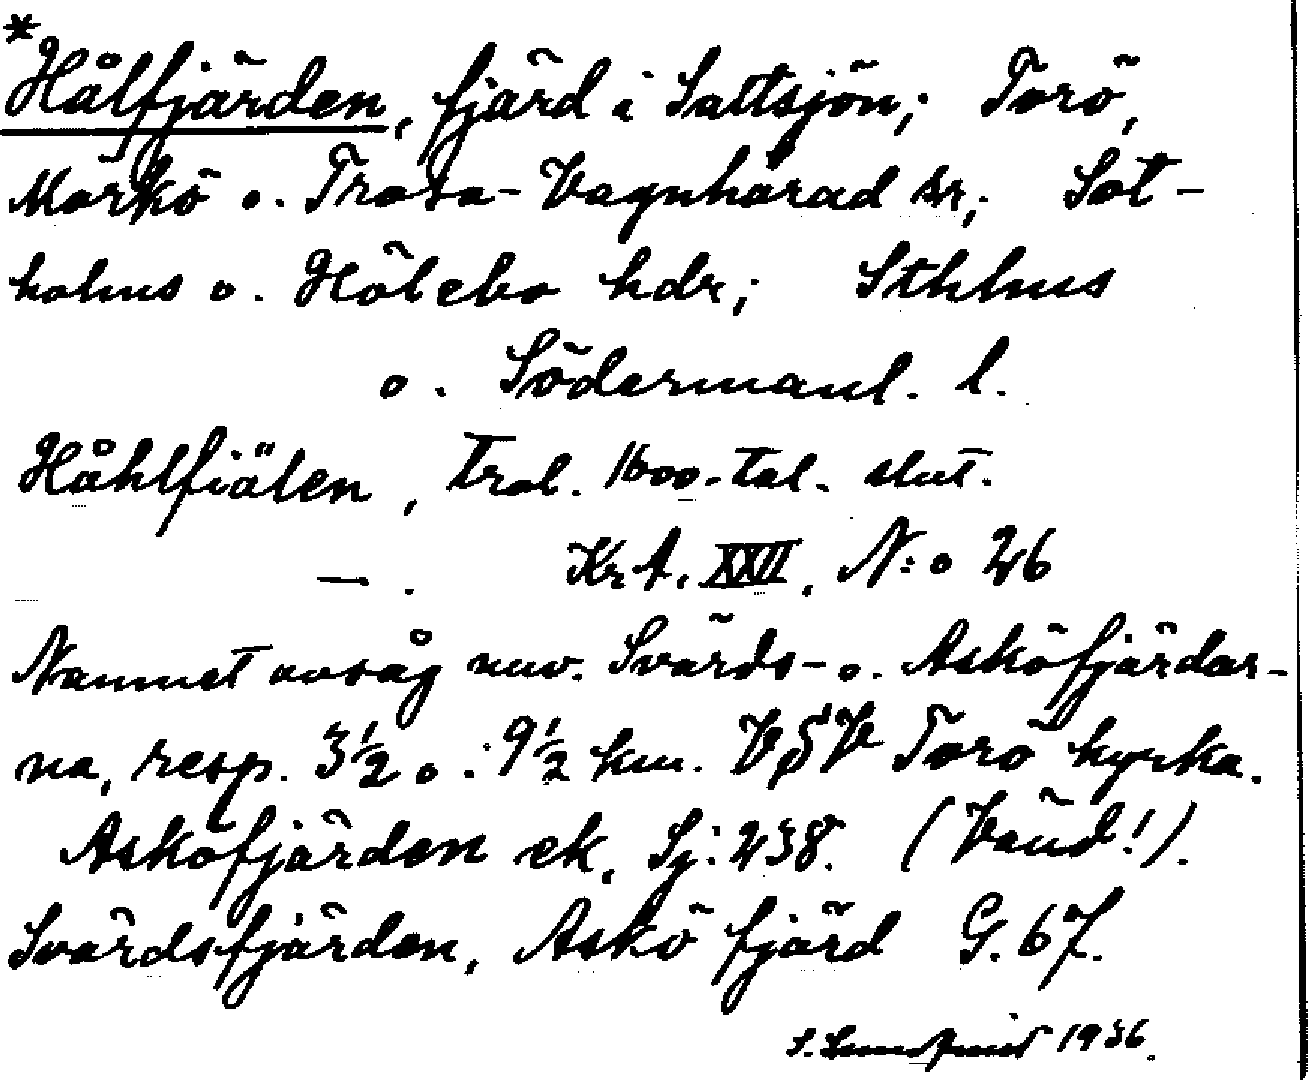 *
Hålfjärden, fjärd i Saltsjön; Torö,
Mörkö o. Trosa-Vagnhärad snr; Sot-
holms o. Hölebo hdr; Sthlms
o. Södermanl. l.
Håhlfiälen, trol. 1600-tal. slut.
— . Krt. A. XXVI. N:o 26
Namnet avsåg nuv. Svärds- o. Asköfjärdar-
na, resp. 3½ o. 9½ km. VSV Torö kyrka.
Asköfjärden ek. Sj: 238. (Vänd!).
Svärdsfjärden, Askö fjärd G. 67.
1936.